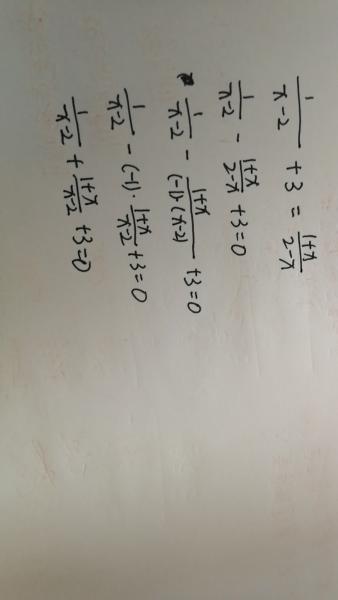 \frac{1}{x-2} + 3 = \frac{1+x}{2-x}
\frac{1}{x-2} - \frac{1+x}{2-x} + 3 = 0
\frac{1}{x-2} - \frac{1+x}{(-1)·(x-2)} + 3 = 0
\frac{1}{x-2} - (-1)·\frac{1+x}{x-2} + 3 = 0
\frac{1}{x-2} + \frac{1+x}{x-2} + 3 = 0